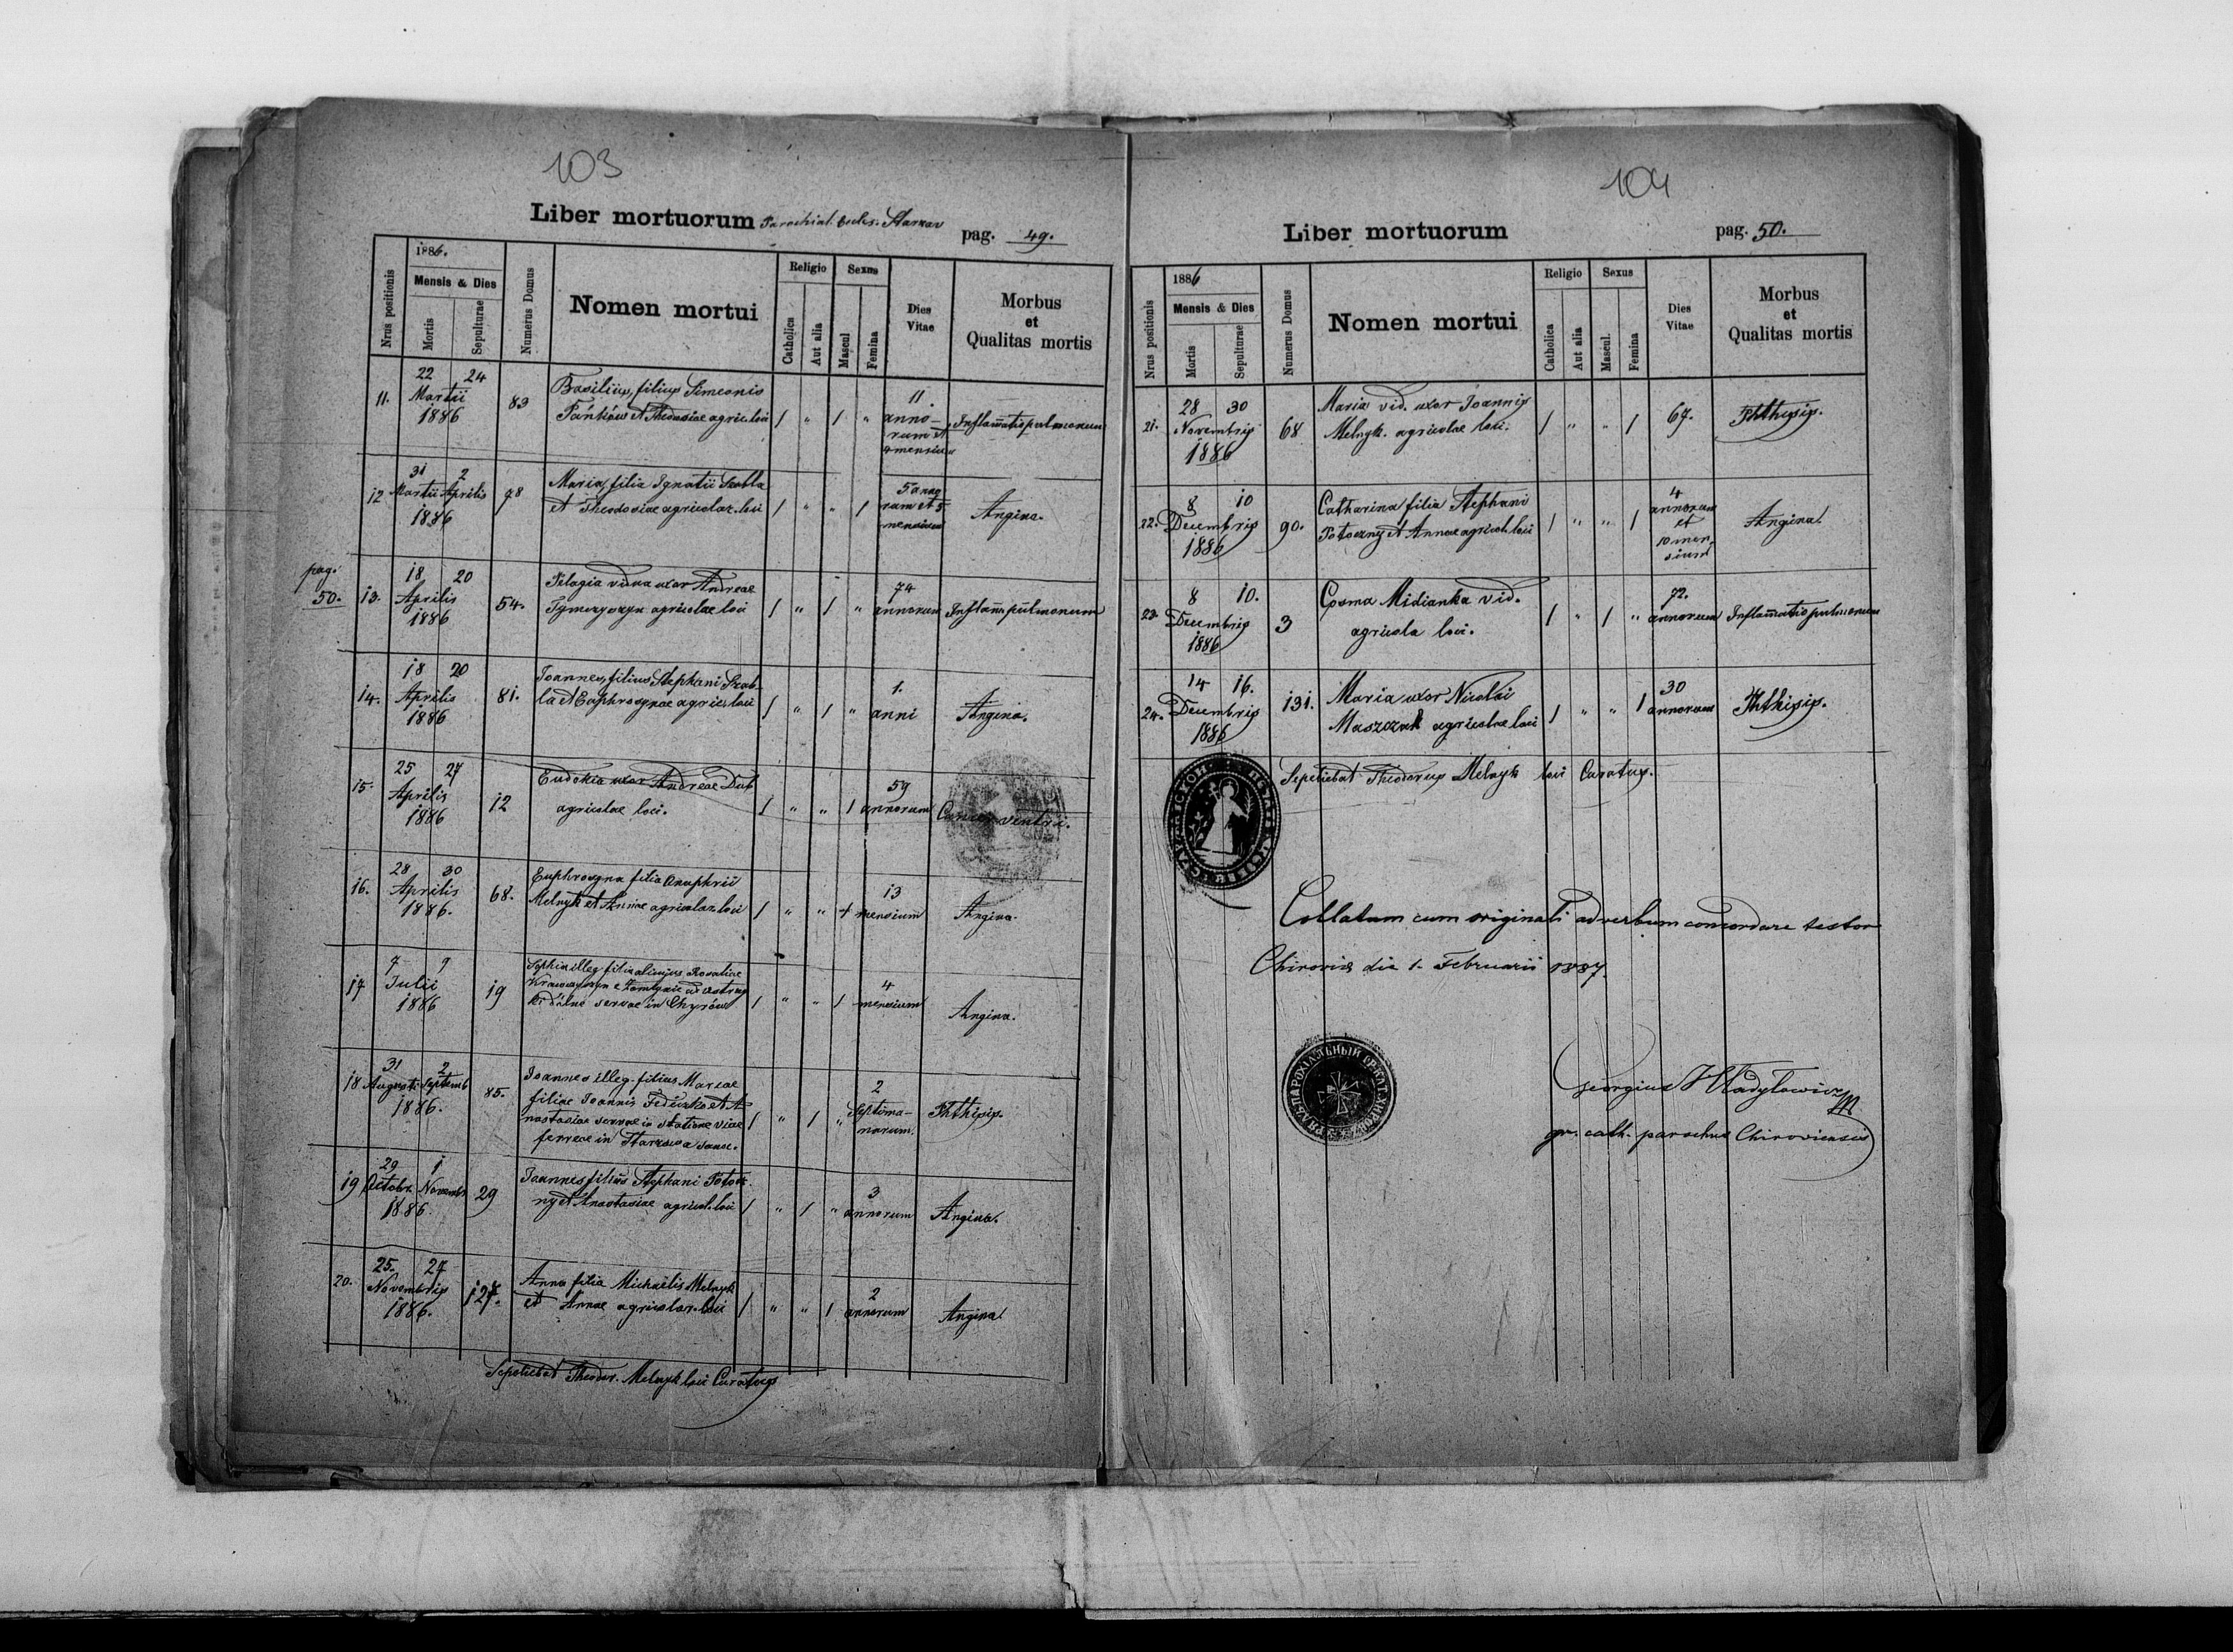 103
Liber mortuorum Parochial. Eccles. Starzav pag. 49.
Nrus positionis
1886.
Mensis & Dies
Mortis
Sepulturae
Numerus Domus
Nomen mortui
Religio
Catholica
Aut alia
Sexus
Mascul
Femina
Dies Vitae
Morbus
et
Qualitas mortis
11.
22 24
Martii
1886
83
Basilius, filius Simeonis
Pańków et Theodosiae agric. loci
1 " 1 "
11.
anno-
rum et
4 mensium
Inflammatio pulmonum
12
31 2
Martii Aprilis
1886
78
Maria, filia Ignatii
et Theodosiae agricolar. loci
1 " " 1
5 anno
rum et 5
mensium
Angina.
pag.
50.
13.
18 20
Aprilis
1886
54.
Pelagia vidua uxor Andreae
agricolae loci
1 " 1 "
74
annorum
Inflamm. pulmonum
14.
18 20
Aprilis
1886
81.
Joannes, filius Stephani
la et Euphrosynae agric. loci
1 " 1 "
1.
anni
Angina.
15.
25 27
Aprilis
1886
12
Eudokia uxor Andreae Dub
agricolae loci.
1 " " 1
59
annorum
Cancer ventri.
16.
28 30
Aprilis
1886.
68.
Euphrosyna filia Onuphrii
Melnyk et Annae agricolar. loci
1 " " +
13
mensium
Angina.
17
7 9
Julii
1886
19
Sophia illeg. filia alicujus Rosaliae
servae in Chyrów
1 " " 1
4
mensium
Angina.
18
31 2
Augusti Septemb
1886.
85.
Joannes illeg. filius Mariae
filiae Joannis Fediuszko et A-
nastasiae servae in statione viae
ferreae in Starzawa
1 " 1 "
2
septima-
narum.
Phthisis.
19
29 1
Octobr. Novembr
1886.
29
Joannes filius Stephani Potocz-
ny et Anastasiae agricol. loci
1 " 1 "
3
annorum
Angina.
20.
25. 27
Novembris
1886.
127.
Anna filia Michaelis Melnyk
et Annae agricolar. loci
1 " " 1
2
annorum
Angina
Sepeliebat Theodor. Melnyk loci Curatus
104
Liber mortuorum pag. 50.
Nrus positionis
1886
Mensis & Dies
Mortis
Sepulturae
Numerus Domus
Nomen mortui
Religio
Catholica
Aut alia
Sexus
Mascul.
Femina
Dies
Vitae
Morbus
et
Qualitas mortis
21.
28 30
Novembris
1886
68
Maria vid. uxor Joannis
Melnyk. agricolae loci.
1 " " 1
67.
Phthisis.
22.
8 10
Decembris
1886
90.
Catharina filia Stephani
Potoczny et Annae agricol. loci
1 " " 1
4
annorum
et
10 men
sium
Angina.
23.
8 10.
Decembris
1886
3
Cosma Midianka vid.
agricola loci.
1 " 1 "
72.
annorum
Inflammatio pulmonum
24.
14 16.
Decembris
1886
131.
Maria uxor Nicolai
Maszczak agricolae loci
1 " " 1
30
annorum
Phthisis.
Sepeliebat Theodorus Melnyk loci Curatus.
Collatum cum originali ad verbum concordare testor
Chirovia die 1. Februarii 1887.
Georgius Hładyłowicz
gr. cath. parochus Chiroviensis